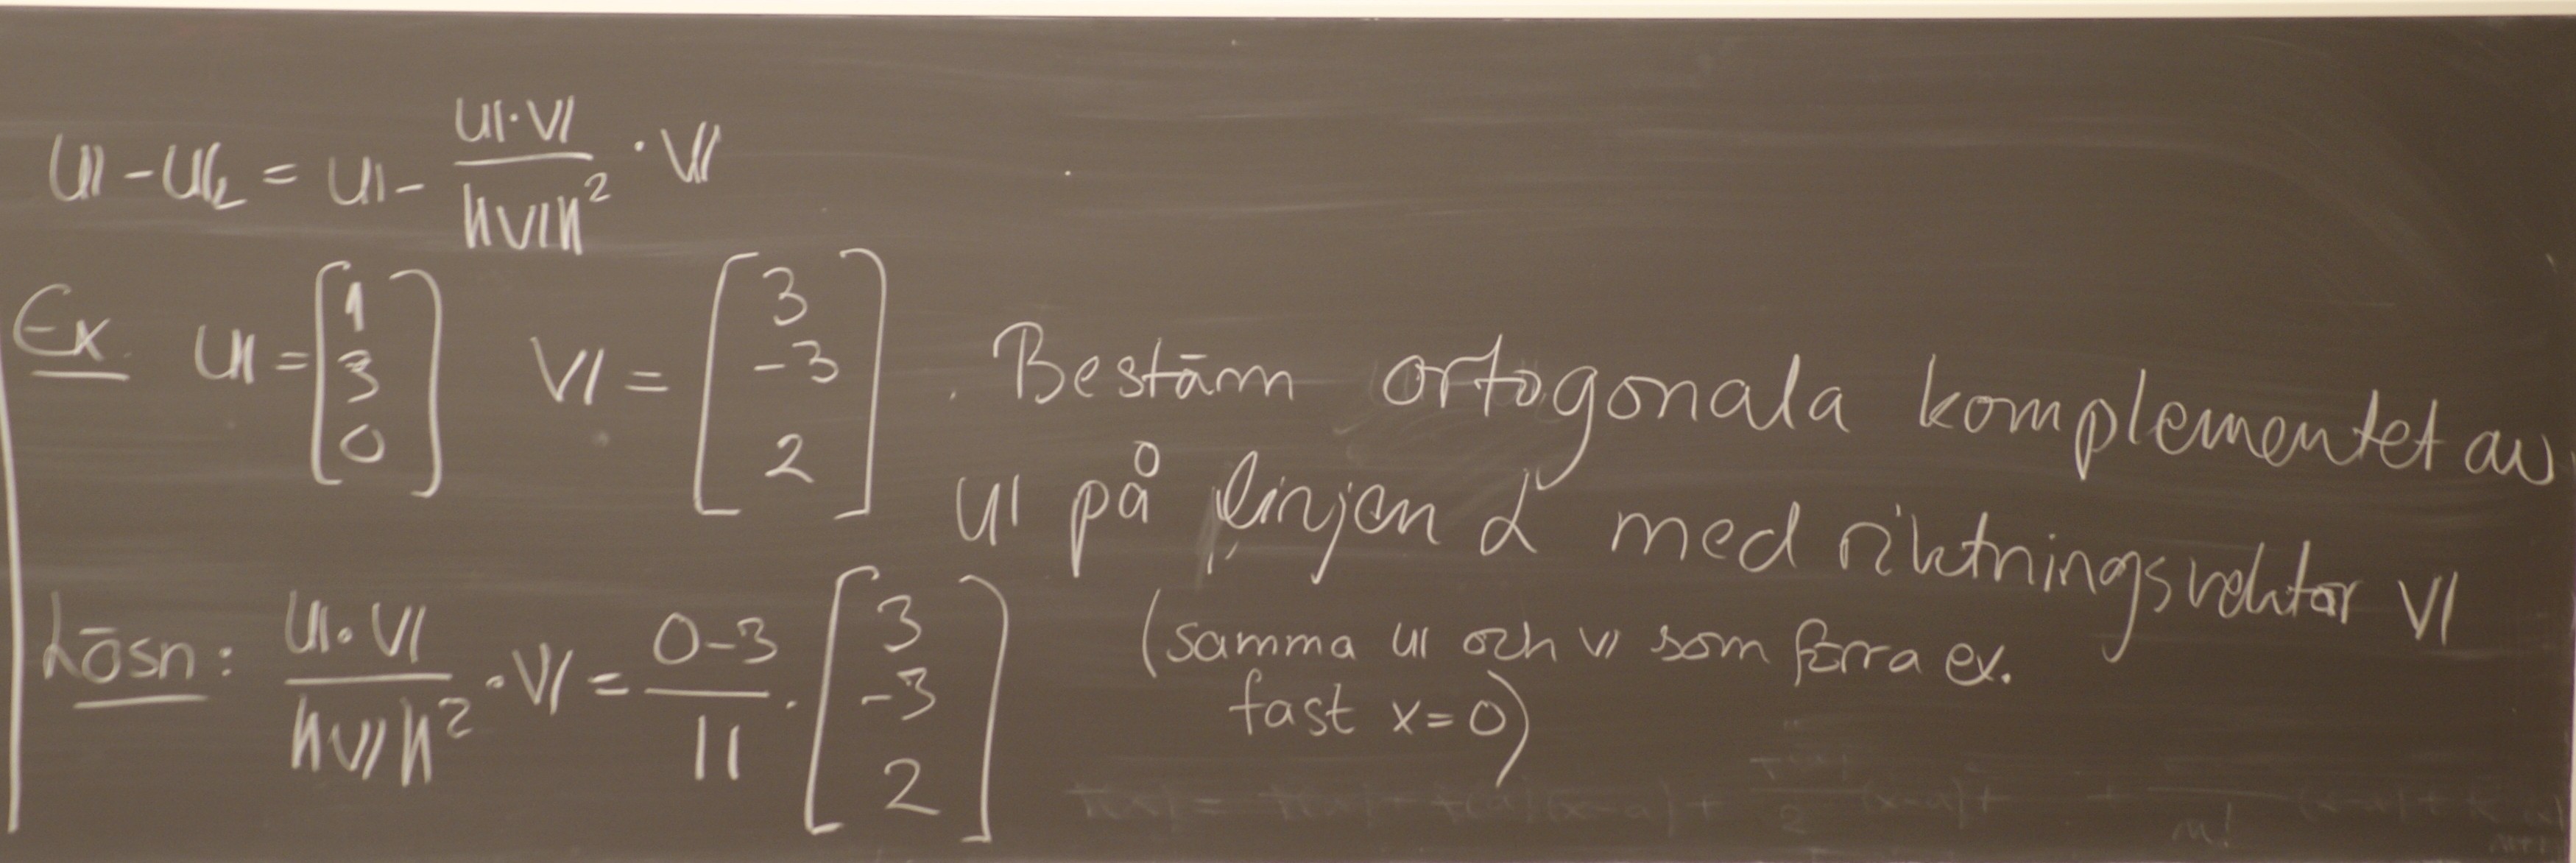 u - u₂ = u - (u·v)/(‖v‖²) · v
Ex. u = [1 3 0] v = [3 -3 2] . Bestäm ortogonala komplementet av
u på linjen L med riktningsvektor v
(samma u och v som förra ex.
fast x=0)
Lösn: (u·v)/(‖v‖²) · v = (0-3)/11 · [3 -3 2]